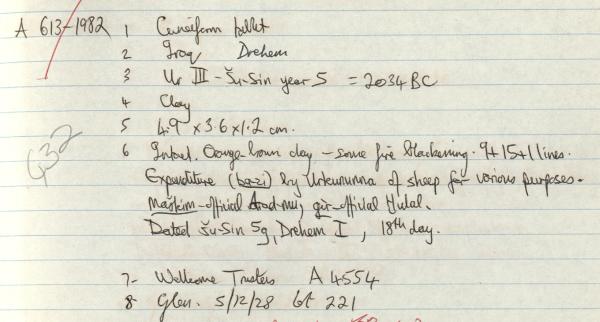 A 613-1982 1 Cuneiform tablet
2 Iraq Drehem
3 Ur III - Šu-Sin year 5 = 2034 BC
4 Clay
5 4.9 x 3.6 x 1.2 cm.
6 Intact. Orange-brown clay - some fire blackening. 9+15+1 lines.
Expenditure (ba-zi) by Urkununna of sheep for various purposes.
Maškim-official Arad-mu, gir-official Hulal.
Dated Šu-Sin 5g, Drehem I, 18th day.
432
7- Wellcome Trustees A 4554
8- Glen. 5/12/28 lot 221